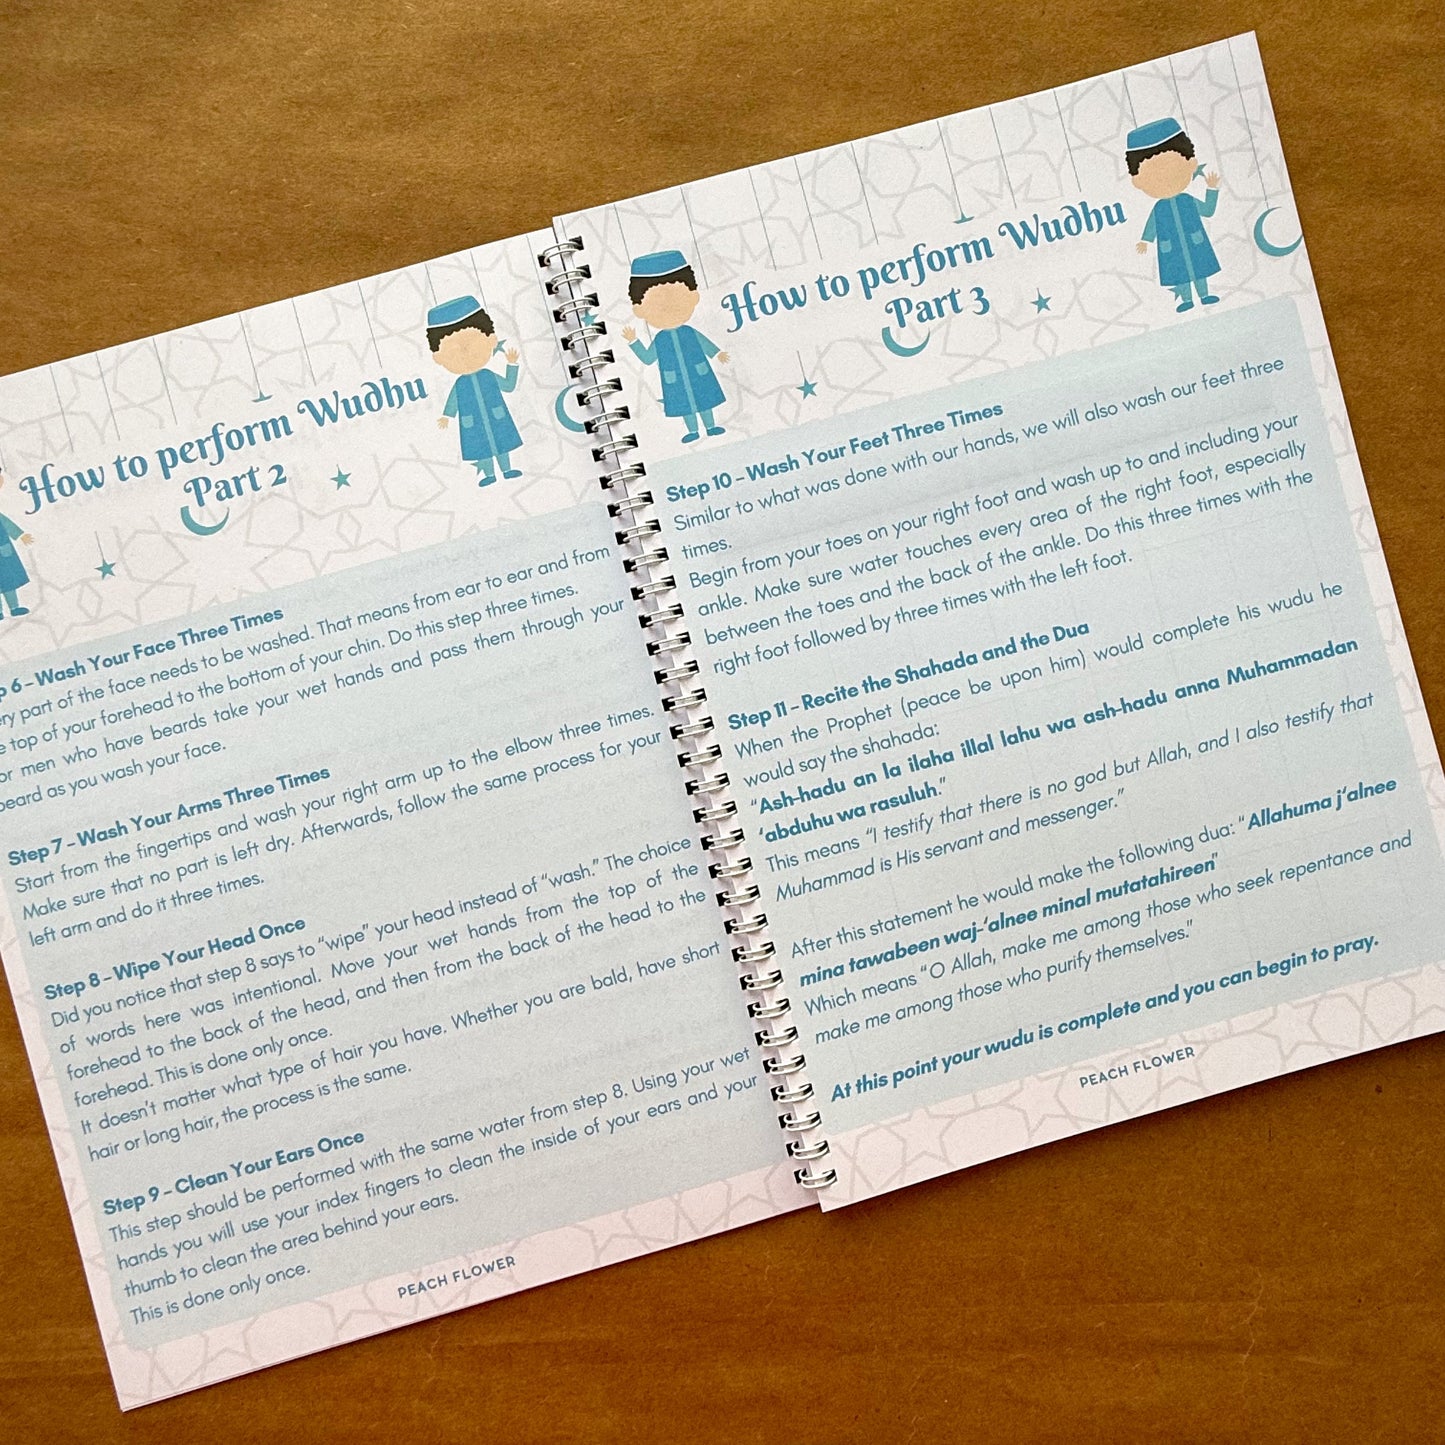 How to perform Wudhu
Part 2
p 6 - Wash Your Face Three Times
ry part of the face needs to be washed. That means from ear to ear and from
e top of your forehead to the bottom of your chin. Do this step three times.
or men who have beards take your wet hands and pass them through your
beard as you wash your face.
Step 7 - Wash Your Arms Three Times
Start from the fingertips and wash your right arm up to the elbow three times.
Make sure that no part is left dry. Afterwards, follow the same process for your
left arm and do it three times.
Step 8 - Wipe Your Head Once
Did you notice that step 8 says to “wipe” your head instead of “wash.” The choice
of words here was intentional. Move your wet hands from the top of the
forehead to the back of the head, and then from the back of the head to the
forehead. This is done only once.
It doesn't matter what type of hair you have. Whether you are bald, have short
hair or long hair, the process is the same.
Step 9 - Clean Your Ears Once
This step should be performed with the same water from step 8. Using your wet
hands you will use your index fingers to clean the inside of your ears and your
thumb to clean the area behind your ears.
This is done only once.
PEACH FLOWER
How to perform Wudhu
Part 3
Step 10 - Wash Your Feet Three Times
Similar to what was done with our hands, we will also wash our feet three
times.
Begin from your toes on your right foot and wash up to and including your
ankle. Make sure water touches every area of the right foot, especially
between the toes and the back of the ankle. Do this three times with the
right foot followed by three times with the left foot.
Step 11 - Recite the Shahada and the Dua
When the Prophet (peace be upon him) would complete his wudu he
would say the shahada:
“Ash-hadu an la ilaha illal lahu wa ash-hadu anna Muhammadan
‘abduhu wa rasuluh.”
This means “I testify that there is no god but Allah, and I also testify that
Muhammad is His servant and messenger.”
After this statement he would make the following dua: “Allahuma j‘alnee
mina tawabeen waj-‘alnee minal mutatahireen”
Which means “O Allah, make me among those who seek repentance and
make me among those who purify themselves.”
At this point your wudu is complete and you can begin to pray.
PEACH FLOWER